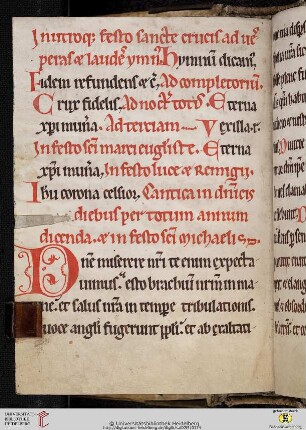 In utroq; festo sancte crucis ad ues
peras & laudes ymn' Hymnum dicam'.
Fidem refundens & c̄. Ad completoriū.
Crux fidelis. Ad noct' tot's. Eterna
xp̄i mun̄a. Ad terciam Vexilla.r.
In festo sc̄i marci euḡliste. Eterna
xp̄i mun̄a. In festo luce & Remigii.
Ihu corona celsior. Cantica in dn̄icis
diebus per totum annum
dicenda. & in festo sc̄i michaelis.
Dn̄e miserere nr̄i te enim expecta
uimus. esto brachiū nr̄m in ma
ne. et salus nr̄a in tempe tribulationis.
A uoce angli fugerunt pp̄li. et ab exaltati
UNIVERSITÄTS-
BIBLIOTHEK
HEIDELBERG
© Universitätsbibliothek Heidelberg